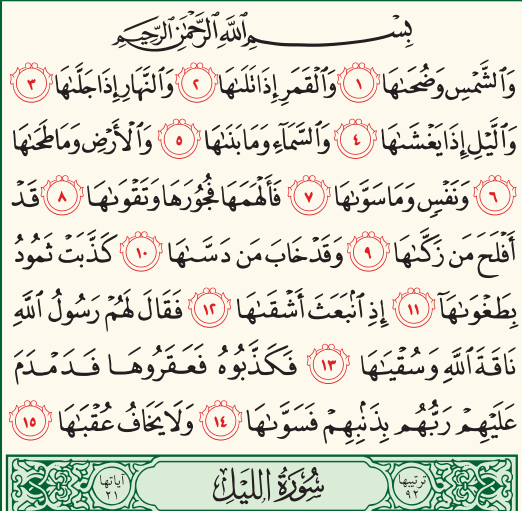 بِسْمِ ٱللَّهِ ٱلرَّحْمَٰنِ ٱلرَّحِيمِ
وَٱلشَّمْسِ وَضُحَىٰهَا ١ وَٱلْقَمَرِ إِذَا تَلَىٰهَا ٢ وَٱلنَّهَارِ إِذَا جَلَّىٰهَا ٣
وَٱلَّيْلِ إِذَا يَغْشَىٰهَا ٤ وَٱلسَّمَآءِ وَمَا بَنَىٰهَا ٥ وَٱلْأَرْضِ وَمَا طَحَىٰهَا
٦ وَنَفْسٍ وَمَا سَوَّىٰهَا ٧ فَأَلْهَمَهَا فُجُورَهَا وَتَقْوَىٰهَا ٨ قَدْ
أَفْلَحَ مَن زَكَّىٰهَا ٩ وَقَدْ خَابَ مَن دَسَّىٰهَا ١٠ كَذَّبَتْ ثَمُودُ
بِطَغْوَىٰهَآ ١١ إِذِ ٱنۢبَعَثَ أَشْقَىٰهَا ١٢ فَقَالَ لَهُمْ رَسُولُ ٱللَّهِ
نَاقَةَ ٱللَّهِ وَسُقْيَٰهَا ١٣ فَكَذَّبُوهُ فَعَقَرُوهَا فَدَمْدَمَ
عَلَيْهِمْ رَبُّهُم بِذَنۢبِهِمْ فَسَوَّىٰهَا ١٤ وَلَا يَخَافُ عُقْبَٰهَا ١٥
ترتيبها ٩٢ سُورَةُ اللَّيْلِ آياتها ٢١